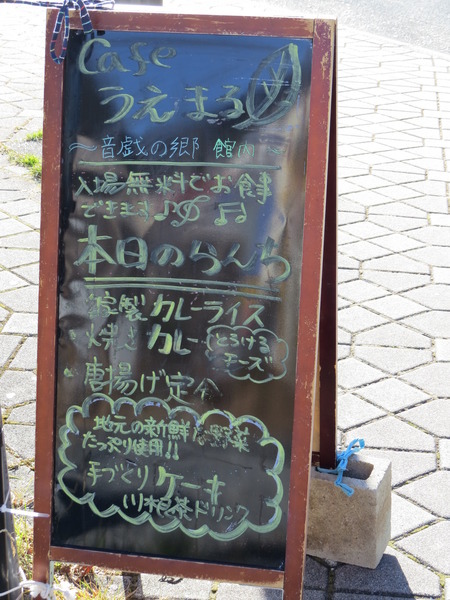 Cafe
うえまる
～音戯の郷 館内～
入場無料でお食事
できます♪
本日のらんち
・家製カレーライス
・焼きカレー とろける
チーズ
・唐揚げ定食
地元の新鮮な野菜
たっぷり使用!!
手づくりケーキ
川根茶ドリンク